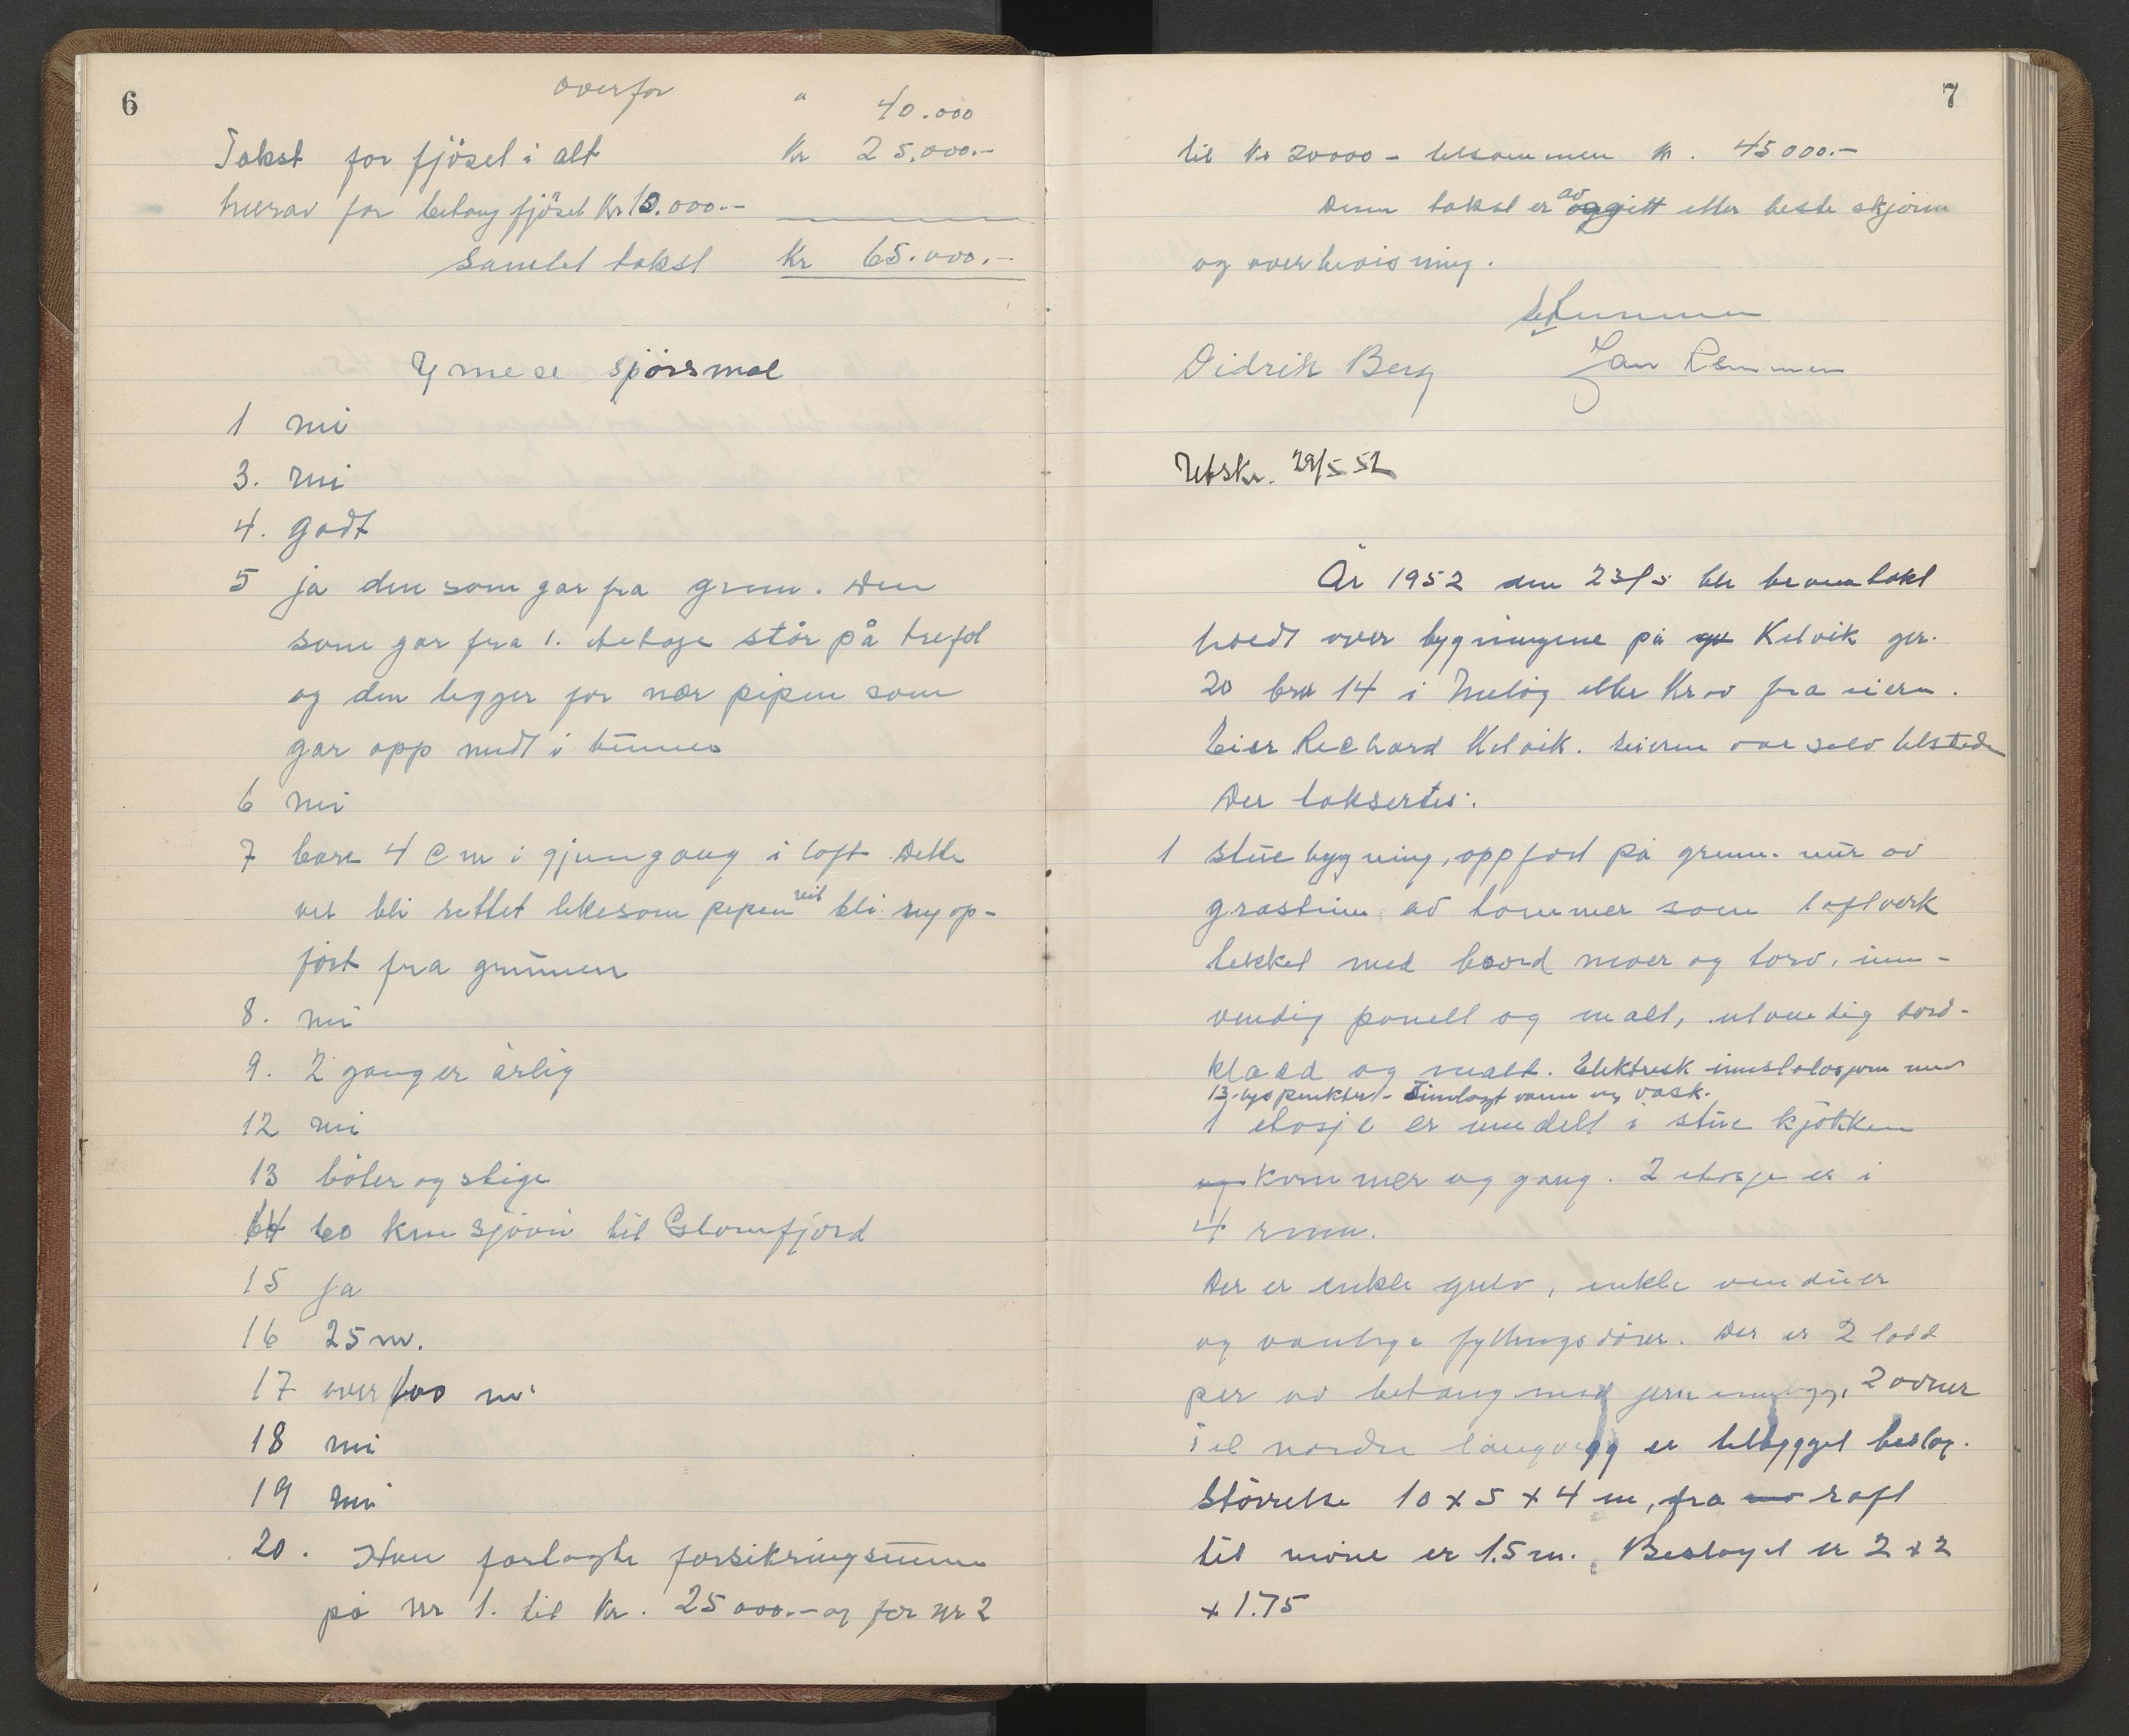 6
overfor " 40.000
Takst for fjøset i alt Kr 25.000.-
herav for betong fjøset Kr 10.000.-
Samlet takst Kr 65.000.-
Ymese spörsmal
1 nei
3. nei
4. godt
5 ja den som gar fra grun. Den
som gar fra 1. etetasje står på trefot
og den ligger for nær pipen som
gar opp midt i
6 nei
7 bare 4 cm i gjengang i loft Dette
vil bli rettet likesom pipen vil bli ny op-
ført fra grunnen
8. nei
9. 2 ganger årlig
12 nei
13 böter og stige
14 60 km sjövei til Glomfjord
15 ja
16 25 m.
17 over 100 m
18 nei
19 nei
20. Han forlagte forsikringsumen
på nr 1. til Kr. 25 000.- og for nr 2
7
til Kr 20000 - tilsammen Kr. 45000.-
Denn takst er av oggitt etter beste skjønn
og overbevisning.
Didrik Berg Jan Remmen
Utskr. 29/5 52
År 1952 den 23/5 ble branntakst
holdt over bygningene på Kilvik gnr.
20 bnr 14 i Meløy etter Krav fra eieren.
Eier Richard Kilvik. Eieren var selv tilstede
Der taksertes:
1 stuebygning, oppført på grunn. mur av
grastein av tømmer som laftverk
tekket med boord never og torv. inn-
vendig panelt og malt, utvendig bord-
kladd og malt. Elektrisk innstalasjon med
13 lyspunkter - Innlagt vann og vask.
1 etasje er inndelt i stue kjøkken
og kammer og gang. 2 etasje er i
4 rum.
Der er enkle gulv, enkle vinduer
og vanlige fyllingsdører. Der er 2 ladd
per av betong med jern innlegg, 2 ovner
i el nordre langvegg er tilbygget beslag.
Störrelse 10 x 5 x 4 m, fra raft
til møne er 1.5 m. Beslaget er 2 x 2
x 1.75